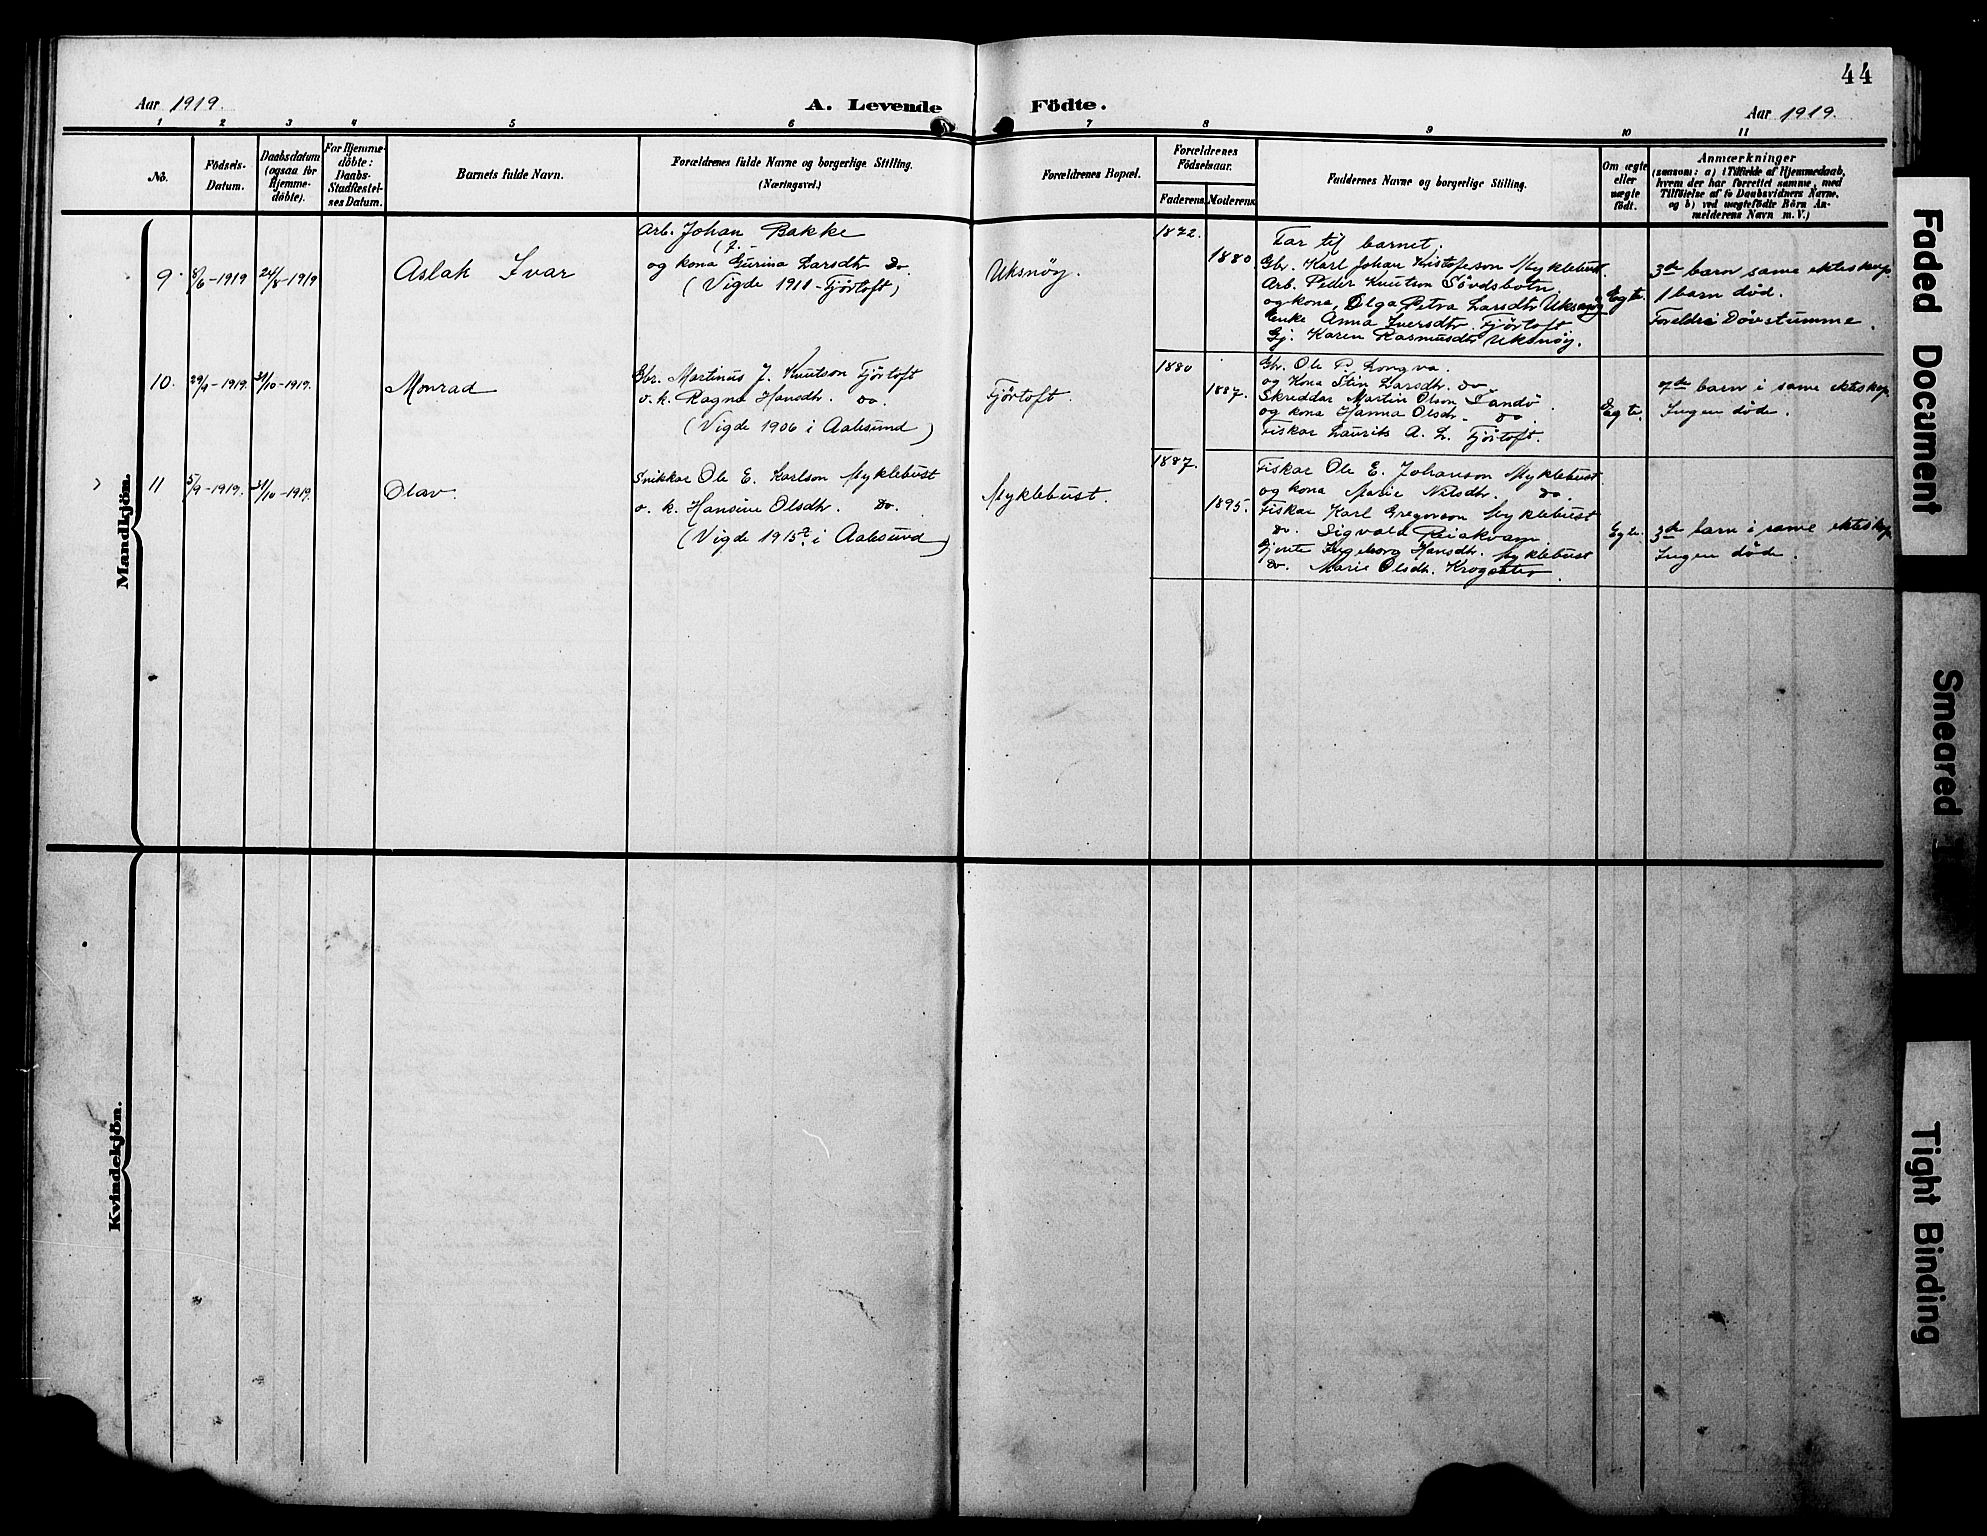 44
Aar 1919.
A. Levende Födte.
Aar 1919.
1 2 3 4 5 6 7 8 9 10 11
No.
Födsels-
Datum.
Daabsdatum
(ogsaa for
Hjemme-
döbte).
For Hjemme-
döbte:
Daabs-
Stadfæstel-
ses Datum.
Barnets fulde Navn.
Forældrenes fulde Navne og borgerlige Stilling.
(Næringsvei.)
Forældrenes Bopæl.
Forældrenes
Födselsaar.
Faderens. Moderens.
Faddernes Navne og borgerlige Stilling.
Om ægte
eller
uægte
født.
Anmærkninger
(saasom: a) i Tilfælde af Hjemmedaab,
hvem der har forrettet samme, med
Tilföielse af to Daabsvidners Navne,
og b) ved uægtefödte Börn An-
melderens Navn m. V.)
Mandkjön.
9. 8/6-1919 24/8-1919
Aslak Ivar
Arb. Johan Bakke
og kona Gurina Larsdtr do.
(Vigde 1911 - Fjörtoft)
Uksnøy.
1872.
1880.
Far til barnet.
Gbr. Karl Johan Kristofeson Myklebust.
Arb. Peder Knutsen Sövdsbotn.
og kona, Olga Petra Larsdtr Uksnöy
Enke Anna Iversdtr. Fjörtoft.
Gj. Karen Rasmusdtr Uksnöy.
Egte.
3de barn same ekteskap
1 barn död.
Foreldre Døvstumme.
10. 29/4-1919. 31/10-1919.
Monrad
Gbr. Martinus J. Knutson Fjörtoft
o. k. Ragna Hansdtr. do.
(Vigde 1906 i Aalesund)
Fjörtoft.
1880
1887.
Gbr. Ole P. Longva.
og Kona Stin Larsdtr. do
Skreddar Martin Olson Sandö.
og kona Hanna Olsdr. do
Fiskar Laurits A. L. Fjörtoft.
Egte.
7de barn i same ekteskap.
Ingen døde.
11 5/9-1919. 31/10-1919.
Olav.
Snikkar Ole E. Karlson Myklebust
o. k. Hansine Olsdtr. do.
(Vigde 1915 i Aalesund)
Myklebust.
1887.
1895.
Fiskar Ole E. Johanson Myklebust
og kona Marie Nilsdtr. do.
Fiskar Karl Gregorson Myklebust
do. Sigvald
Gjente Ingeborg Hansdtr. Myklebust
do. Marie Olsdtr. Krogsæter.
Egte.
3de barn i same ekteskap.
Ingen døde.
Kvindekjön.
Faded Document
Smeared
Tight Binding